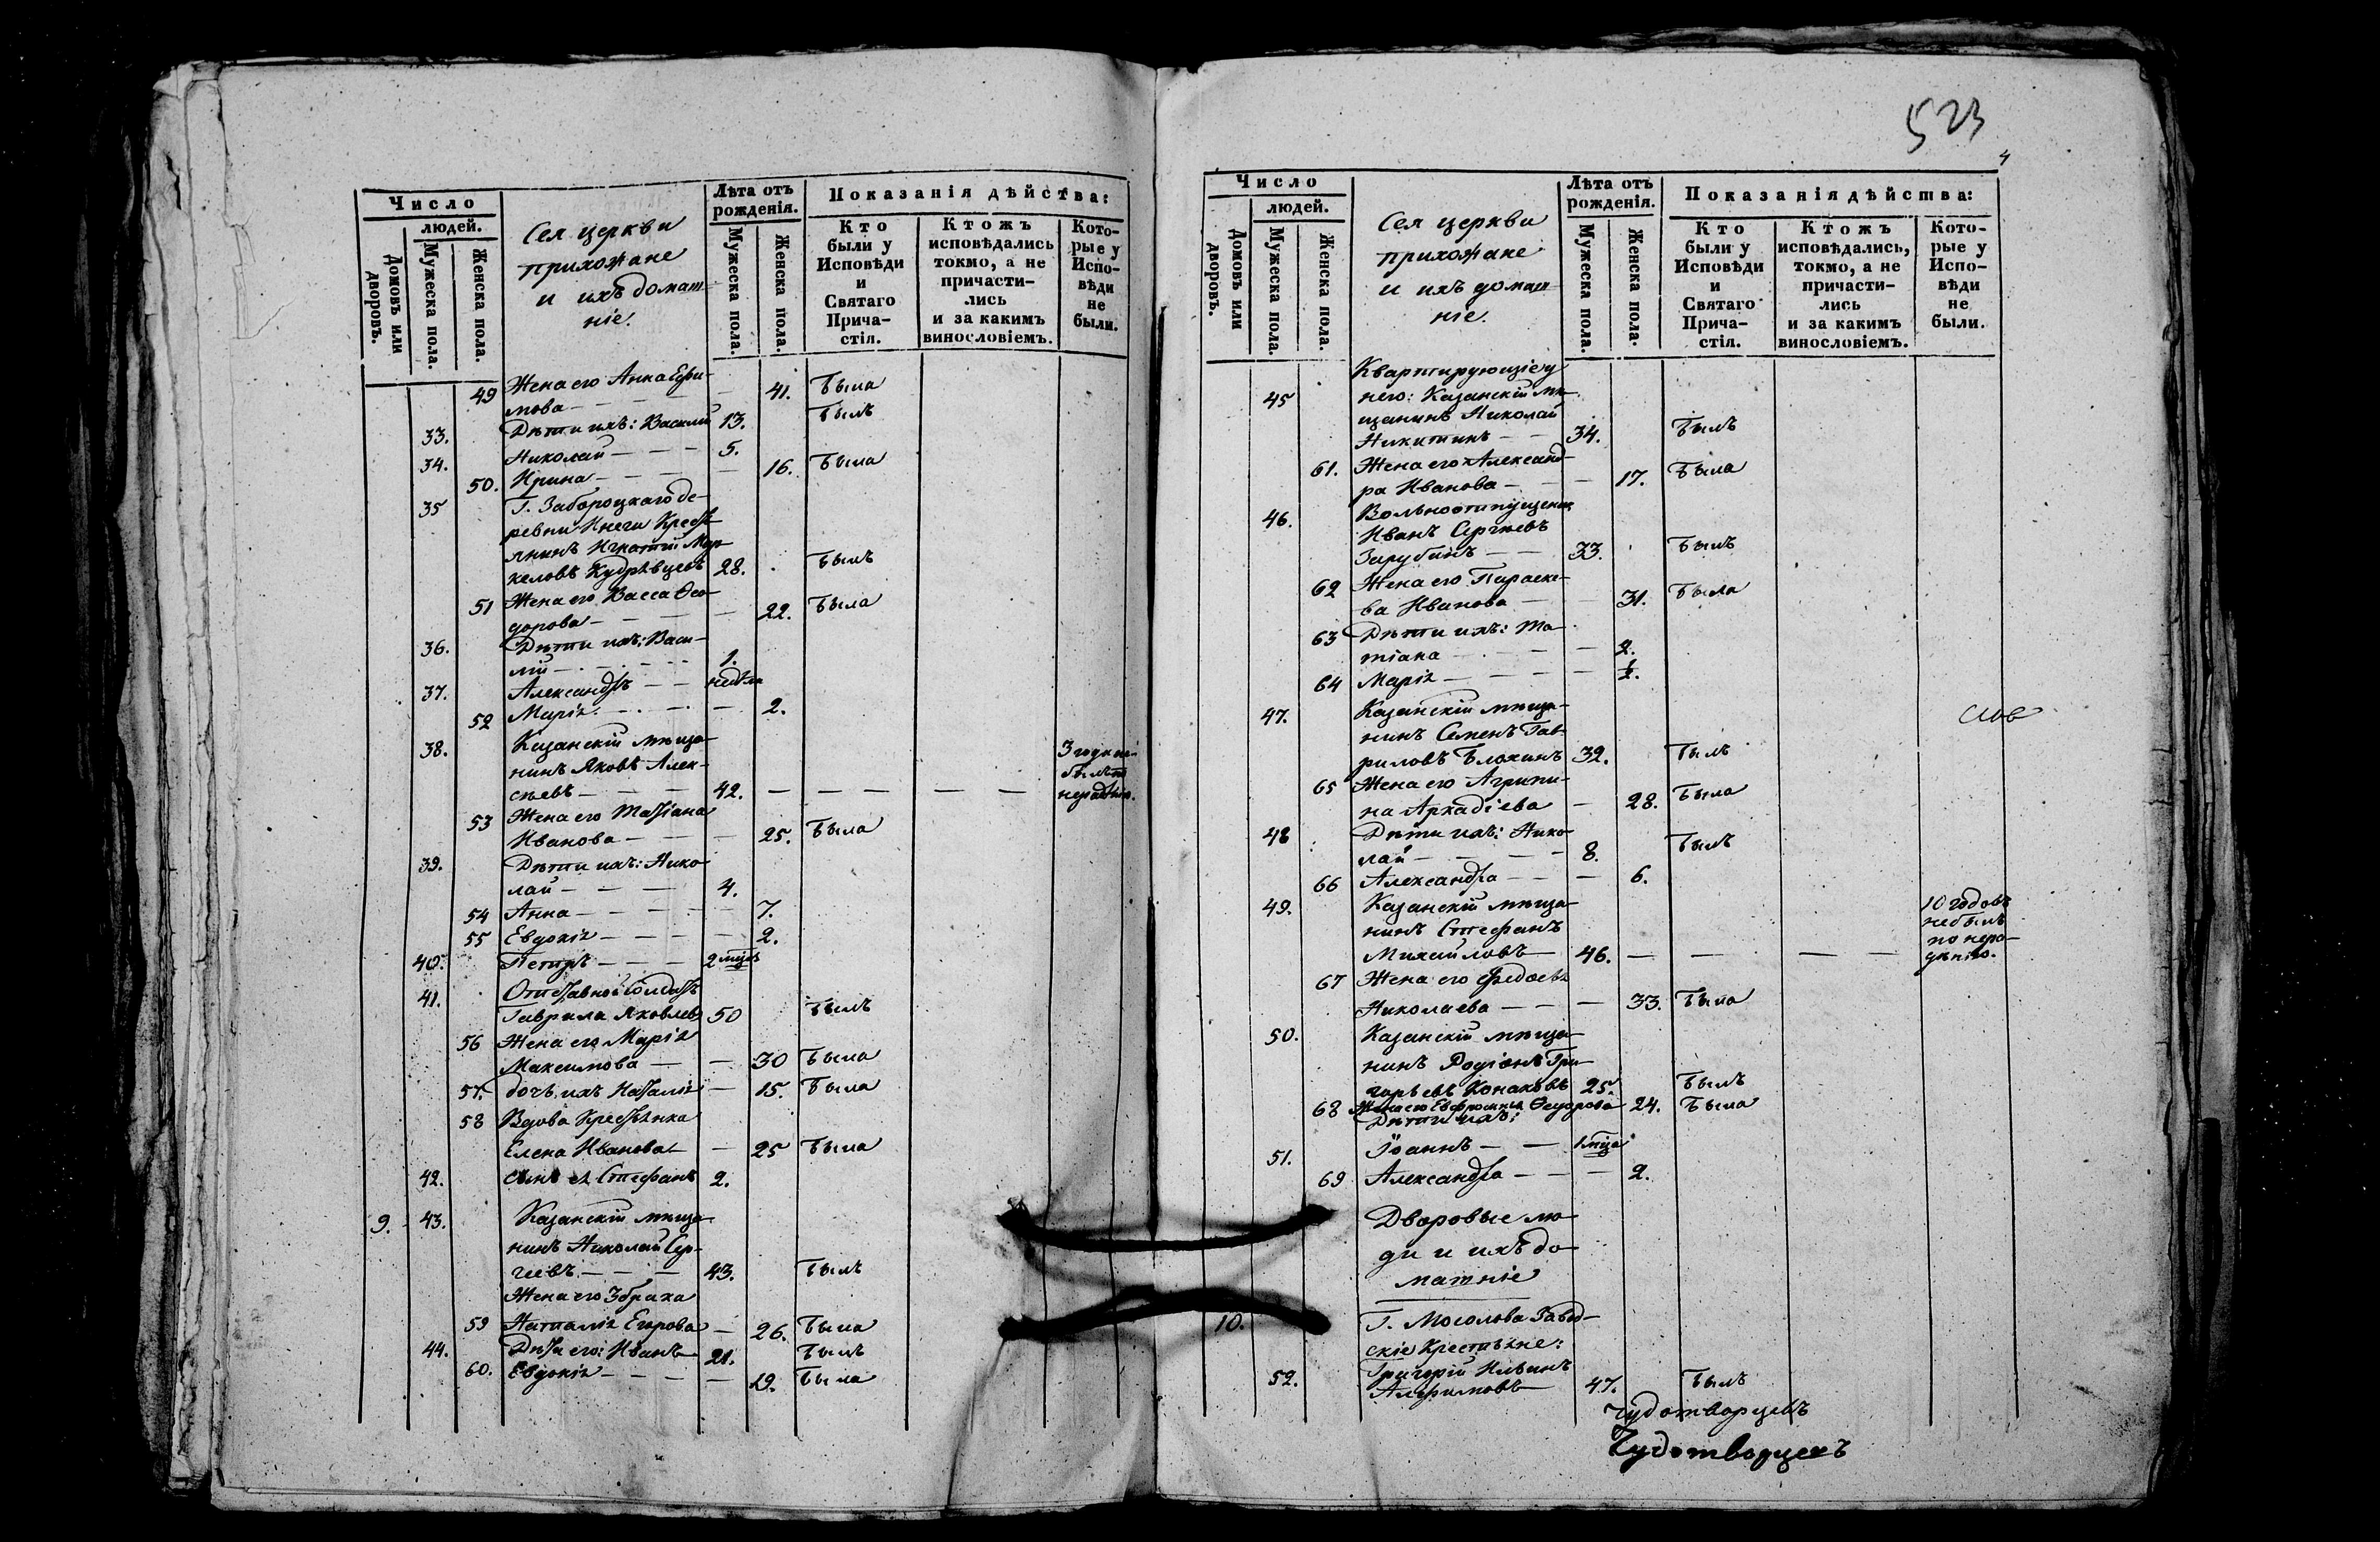 523
4
Число
людей.
Домовъ или дворовъ.
Мужеска пола.
Женска пола.
Сея церкви
прихожане
и ихъ домаш-
ніе.
Лѣта отъ
рожденія.
Мужеска пола.
Женска пола.
Показанія дѣйства:
Кто
были у
Исповѣди
и
Святаго
Прича-
стія.
Ктожъ
исповѣдались
токмо, а не
причасти-
лись
и за какимъ
винословіемъ.
Кото-
рые у
Испо-
вѣди
не
были.
49 Жена его Анна Ефи-
мова — 41. Была
33. Дѣти ихъ: Василій 13. Былъ
34. Николай — — — 5.
50. Ирина — — — 16. Была
35 Г. Забороцкаго де-
ревни Кресть-
янинъ Игнатій Мар-
келовъ Кудрявцевъ 28. Былъ
51 Жена его Васса Ѳео-
дорова — — 22. Была
36. Дѣти ихъ: Васи-
лій — — — 1.
37. Александръ — — недѣли
52 Марія — — — 2.
38. Казанскій мѣща-
нинъ Яковъ Алек-
сѣевъ — — — 42. — — — — — 3 года не былъ по нерадѣнію.
53 Жена его Татіана
Иванова — — 25. Была
39. Дѣти ихъ: Нико-
лай — — — 4.
54 Анна — — — — 7.
55 Евдокія — — — — 2.
40. Петръ — — — 2 мѣсяца
41. Отставной Солдатъ
Гаврила Яковлевъ 50 Былъ
56 Жена его Марія
Максимова — — 30 Была
57. дочь ихъ Наталія — 15. Была
58 Вдова Крестьянка
Елена Иванова — — 25 Была
42. сынъ ея Стефанъ 2.
9. 43. Казанскій мѣща-
нинъ Николай Сер-
геевъ — — — 43. Былъ
Жена его 3 брака
59 Наталія Егорова — 26. Была
44. Дѣти его: Иванъ 21. Былъ
60. Евдокія — — — — 19. Была
Число
людей.
Домовъ или дворовъ.
Мужеска пола.
Женска пола.
Сея церкви
прихожане
и ихъ домаш-
ніе.
Лѣта отъ
рожденія.
Мужеска пола.
Женска пола.
Показанія дѣйства:
Кто
были у
Исповѣди
и
Святаго
Прича-
стія.
Ктожъ
исповѣдались,
токмо, а не
причасти-
лись
и за какимъ
винословіемъ.
Кото-
рые у
Испо-
вѣди
не
были.
Квартирующіе у
45 него: Казанскій мѣ-
щанинъ Николай
Никитинъ — — 34. Былъ
61. Жена его Александ-
ра Иванова — — — 17. Была
46. Вольноотпущенн.
Иванъ Сергѣевъ
Зарубинъ — — 33. Былъ
62 Жена его Параске-
ва Иванова — — 31. Была
63 Дѣти ихъ: Та-
тіана — — — 2.
64 Марія — — — — ½.
47. Казанскій мѣща-
нинъ Семенъ Гав-
риловъ Блохинъ 32. Былъ
65 Жена его Агрипи-
на Аркадіева — 28. Была
48 Дѣти ихъ: Нико-
лай — — — — 8. Былъ
66 Александра — — — 6.
49. Казанскій мѣща-
нинъ Стефанъ
Михайловъ — 46. — — — — 10 годовъ не былъ по нера-дѣнію.
67 Жена его Федосья
Николаева — — — 33. Была
50. Казанскій мѣща-
нинъ Родіонъ Гри-
горьевъ Конаковъ 25. Былъ
68 Жена его Евфросинія Ѳедорова 24. Была
Дѣти ихъ:
51. Іоаннъ — — 1 мѣсяца
69 Александра — — — 2.
Дворовые лю-
ди и ихъ до-
машніе
10. Г. Мосолова Завод-
скіе Крестьяне:
52. Григорій Ильинъ
Алфимовъ — 47. Былъ
Чудотворцевъ
Чудотворцевъ